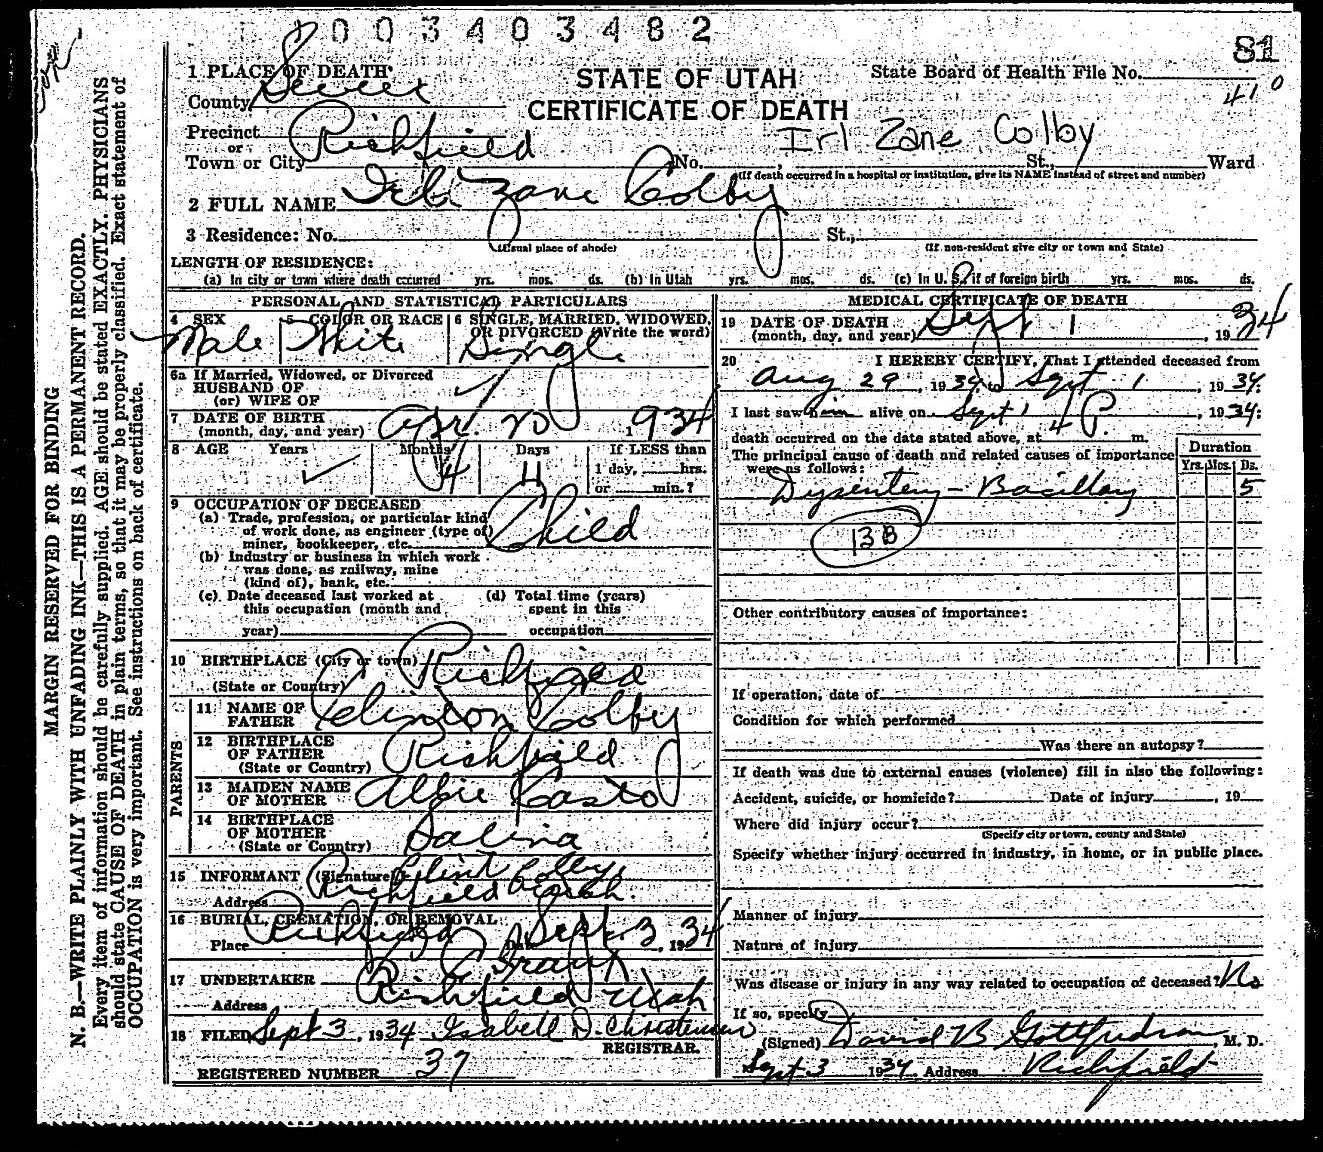 0 0 3 4 0 3 4 8 2
81
410
1 PLACE OF DEATH
STATE OF UTAH
CERTIFICATE OF DEATH
State Board of Health File No.
County Sevier
Precinct
or
Town or City Richfield No. St., Ward
Irl Zane Colby
(If death occurred in a hospital or institution, give its NAME instead of street and number)
2 FULL NAME Zane Colby
3 Residence: No. St.,
(Usual place of abode) (If non-resident give city or town and State)
LENGTH OF RESIDENCE:
(a) In city or town where death occurred yrs. mos. ds. (b) In Utah yrs. mos. ds. (c) In U. S. if of foreign birth yrs. mos. ds.
PERSONAL AND STATISTICAL PARTICULARS
4 SEX Male
5 COLOR OR RACE White
6 SINGLE, MARRIED, WIDOWED, OR DIVORCED (Write the word) Single
6a If Married, Widowed, or Divorced
HUSBAND OF
(or) WIFE OF
7 DATE OF BIRTH
(month, day, and year) Apr. 20 1934
8 AGE Years Months 4 Days 11 If LESS than
1 day, hrs.
or min.?
9 OCCUPATION OF DECEASED
(a) Trade, profession, or particular kind
of work done, as engineer (type of
miner, bookkeeper, etc. Child
(b) Industry or business in which work
was done, as railway, mine
(kind of), bank, etc.
(c) Date deceased last worked at
this occupation (month and
year)
(d) Total time (years)
spent in this
occupation
10 BIRTHPLACE (City or town) Richfield
(State or Country)
PARENTS
11 NAME OF
FATHER Clinton Colby
12 BIRTHPLACE
OF FATHER
(State or Country) Richfield
13 MAIDEN NAME
OF MOTHER Albie Casto
14 BIRTHPLACE
OF MOTHER
(State or Country) Salina
15 INFORMANT (Signature) Clint Colby
Address Richfield Utah.
16 BURIAL, CREMATION, OR REMOVAL
Place Richfield Date Sept. 3, 1934
17 UNDERTAKER
Address Richfield Utah
18 FILED Sept 3, 1934 Isabell D. Christensen
REGISTRAR.
REGISTERED NUMBER 37
MEDICAL CERTIFICATE OF DEATH
19 DATE OF DEATH
(month, day, and year) Sept 1, 1934
20 I HEREBY CERTIFY, That I attended deceased from
Aug 29, 1934, to Sept 1, 1934.
I last saw him alive on Sept 1, 1934:
death occurred on the date stated above, at 4 P. m.
The principal cause of death and related causes of importance
were as follows:
Duration
Yrs. Mos. Ds.
Dysentery - Bacillary 5
13B
Other contributory causes of importance:
If operation, date of
Condition for which performed
Was there an autopsy?
If death was due to external causes (violence) fill in also the following:
Accident, suicide, or homicide? Date of injury , 19
Where did injury occur?
(Specify city or town, county and State)
Specify whether injury occurred in industry, in home, or in public place.
Manner of injury
Nature of injury
Was disease or injury in any way related to occupation of deceased? No
If so, specify
(Signed) David B Gottfredson, M. D.
Sept 3 1934 Address Richfield
MARGIN RESERVED FOR BINDING
N. B.—WRITE PLAINLY WITH UNFADING INK—THIS IS A PERMANENT RECORD.
Every item of information should be carefully supplied. AGE should be stated EXACTLY. PHYSICIANS
should state CAUSE OF DEATH in plain terms, so that it may be properly classified. Exact statement of
OCCUPATION is very important. See instructions on back of certificate.